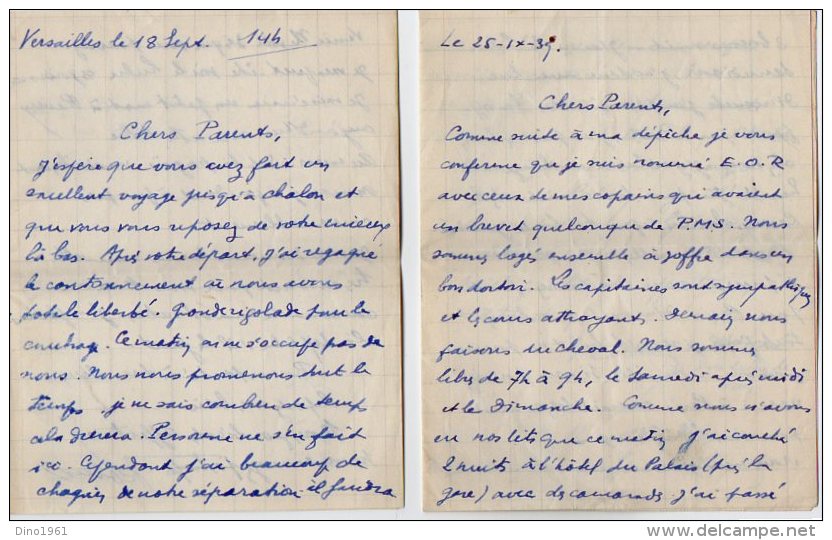 Versailles le 18 Sept. 14h
Chers Parents,
J'espère que vous avez fait un
excellent voyage jusqu'à Chalon et
que vous vous reposez de votre mieux
là bas. Après votre départ, j'ai regagné
le cantonnement où nous avons
totale liberté. Grande rigolade pour le
couchage. Ce matin on ne s'occupe pas de
nous. Nous nous promenons tout le
temps. je ne sais combien de temps
cela durera. Personne ne s'en fait
ici. Cependant j'ai beaucoup de
chagrin de notre séparation il faudra
Le 25-IX-39.
Chers Parents,
Comme suite à ma dépêche je vous
confirme que je suis nommé E.O.R
avec ceux de mes copains qui avaient
un brevet quelconque de P.M.S. Nous
sommes logés ensemble à Joffre dans un
bon dortoir. Les capitaines sont sympathiques
et les cours attrayants. Demain nous
faisons du cheval. Nous sommes
libres de 7h à 9h, le samedi après midi
et le Dimanche. Comme nous n'avons
eu nos lits que ce matin j'ai couché
2 nuits à l'hôtel du Palais (près la
gare) avec des camarades. J'ai passé
Dino1961
www.delcampe.net